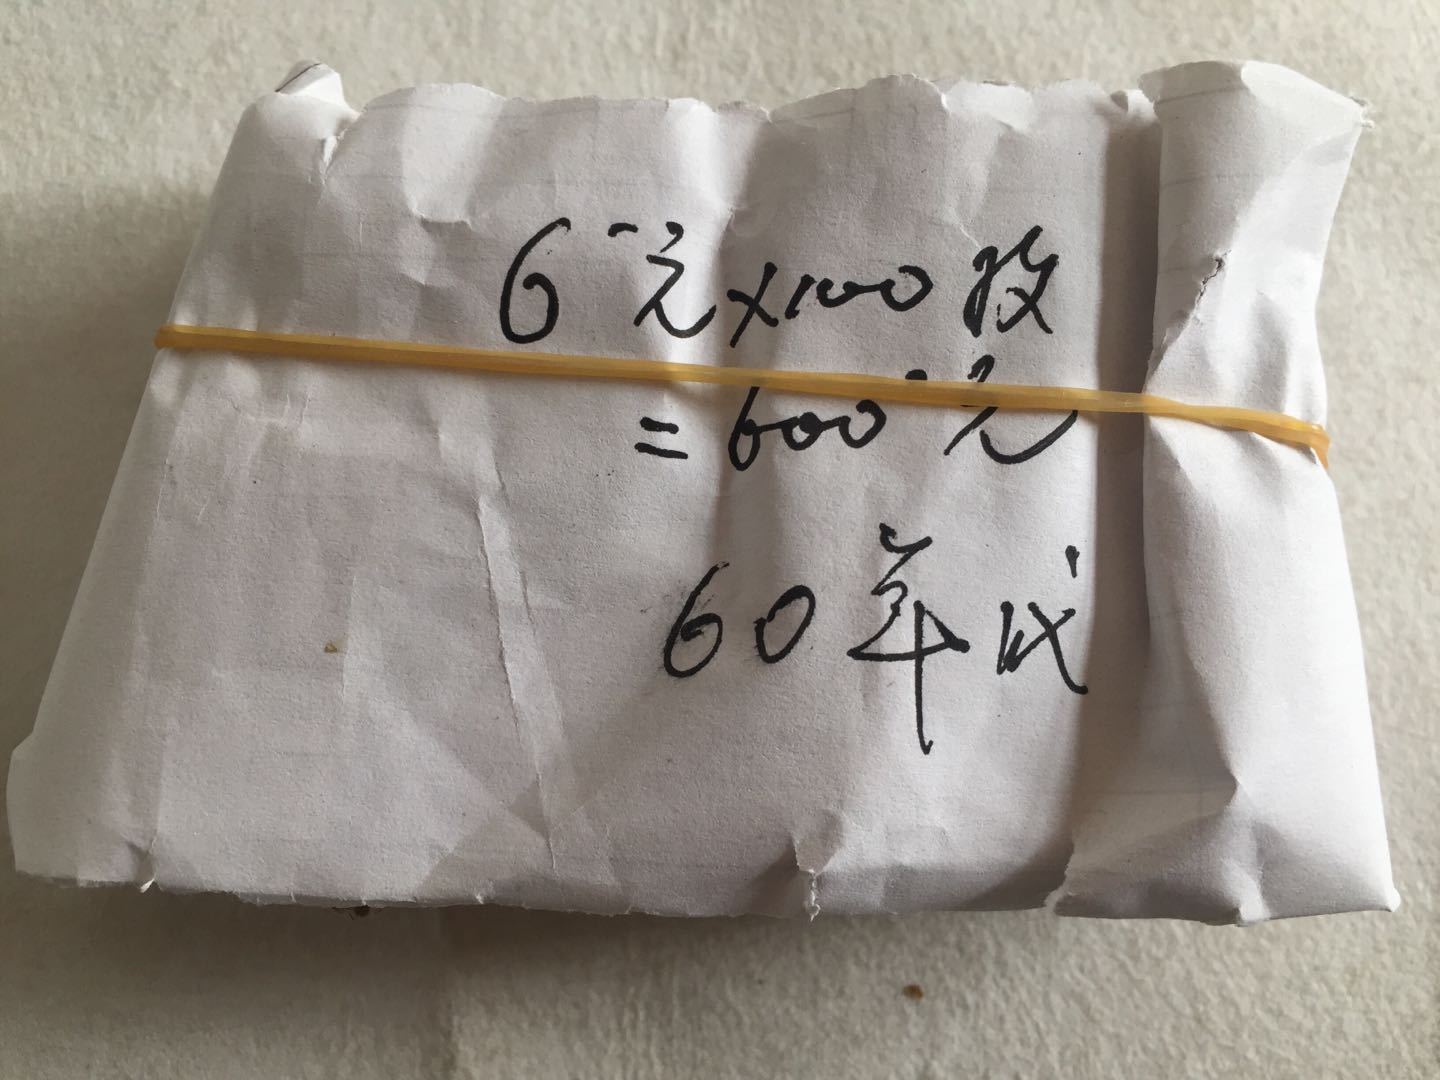 6元×100枚
=600元
60年代